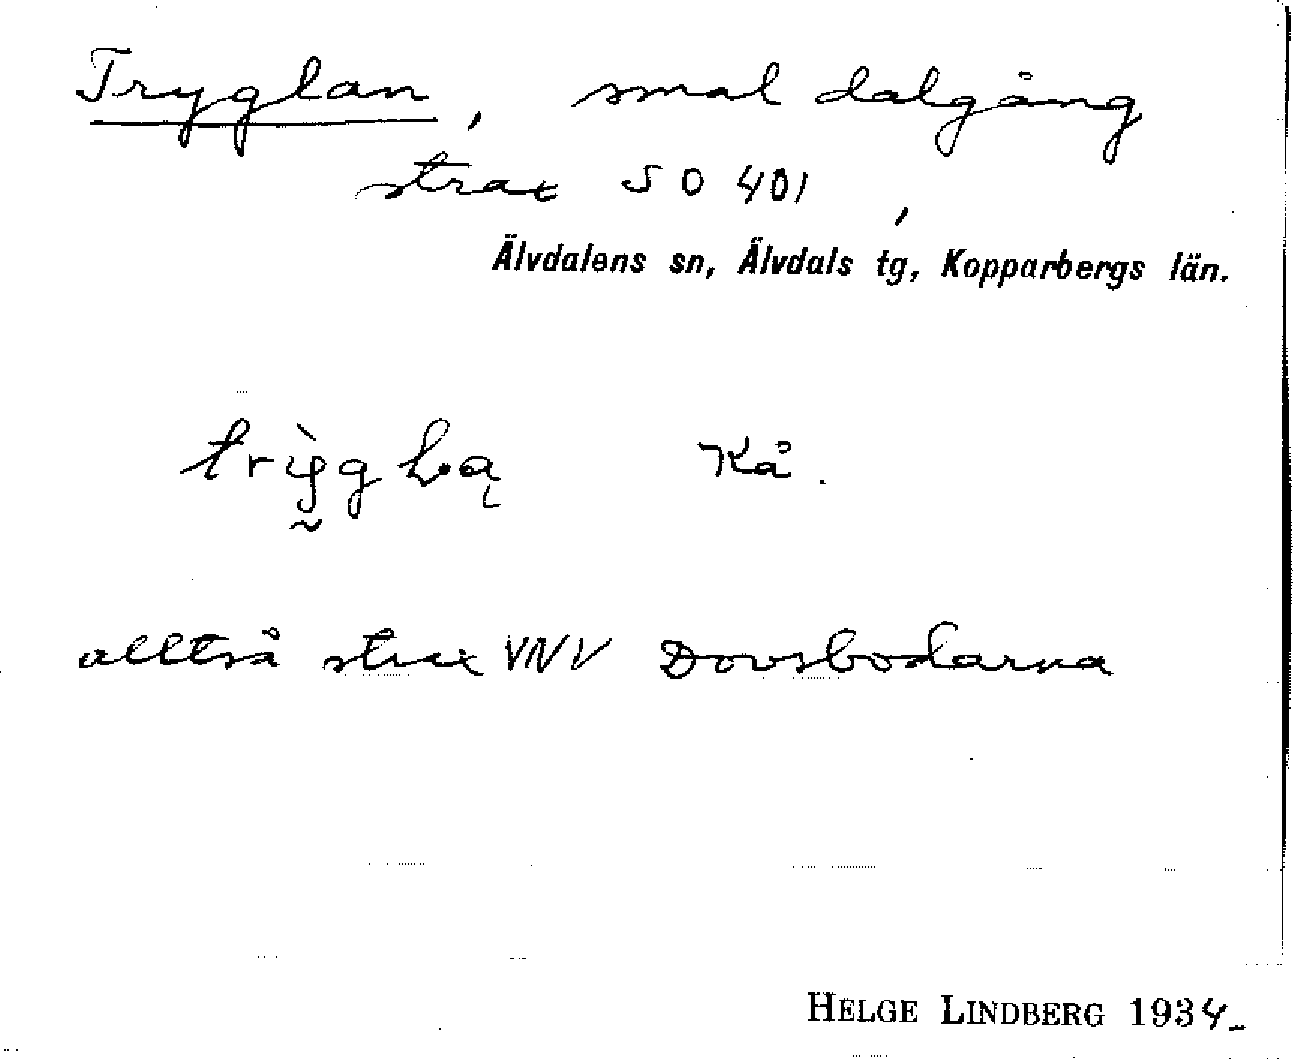 Tryglan, smal dalgång
strax SO 401,
Älvdalens sn, Älvdals tg, Kopparbergs län.
Kå.
alltså strax VNV Dovsbodarna
HELGE LINDBERG 1934